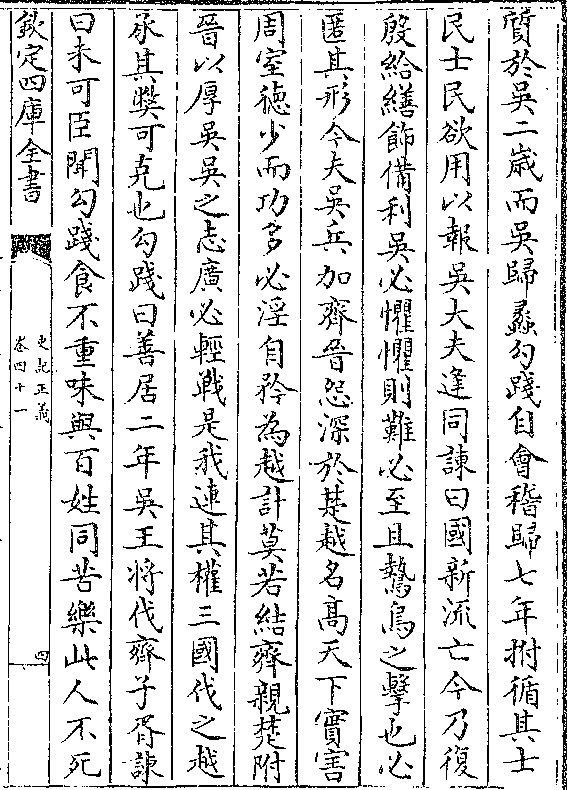 質於吳二歲而吳歸蠡勾踐自會稽歸七年拊循其士
民士民欲用以報吳大夫逢同諫曰國新流亡今乃復
殷給繕飾備利吳必懼懼則難必至且鷙鳥之擊也必
匿其形今夫吳兵加齊晉怨深於楚越名髙天下實害
周室徳少而功多必淫自矜為越計莫若結齊親楚附
晉以厚吳吳之志廣必輕戰是我連其權三國伐之越
承其弊可克也勾踐曰善居二年吳王将伐齊子胥諫
曰未可臣聞勾踐食不重味與百姓同苦樂此人不死
欽定四庫全書
史記正義
卷四十一
四